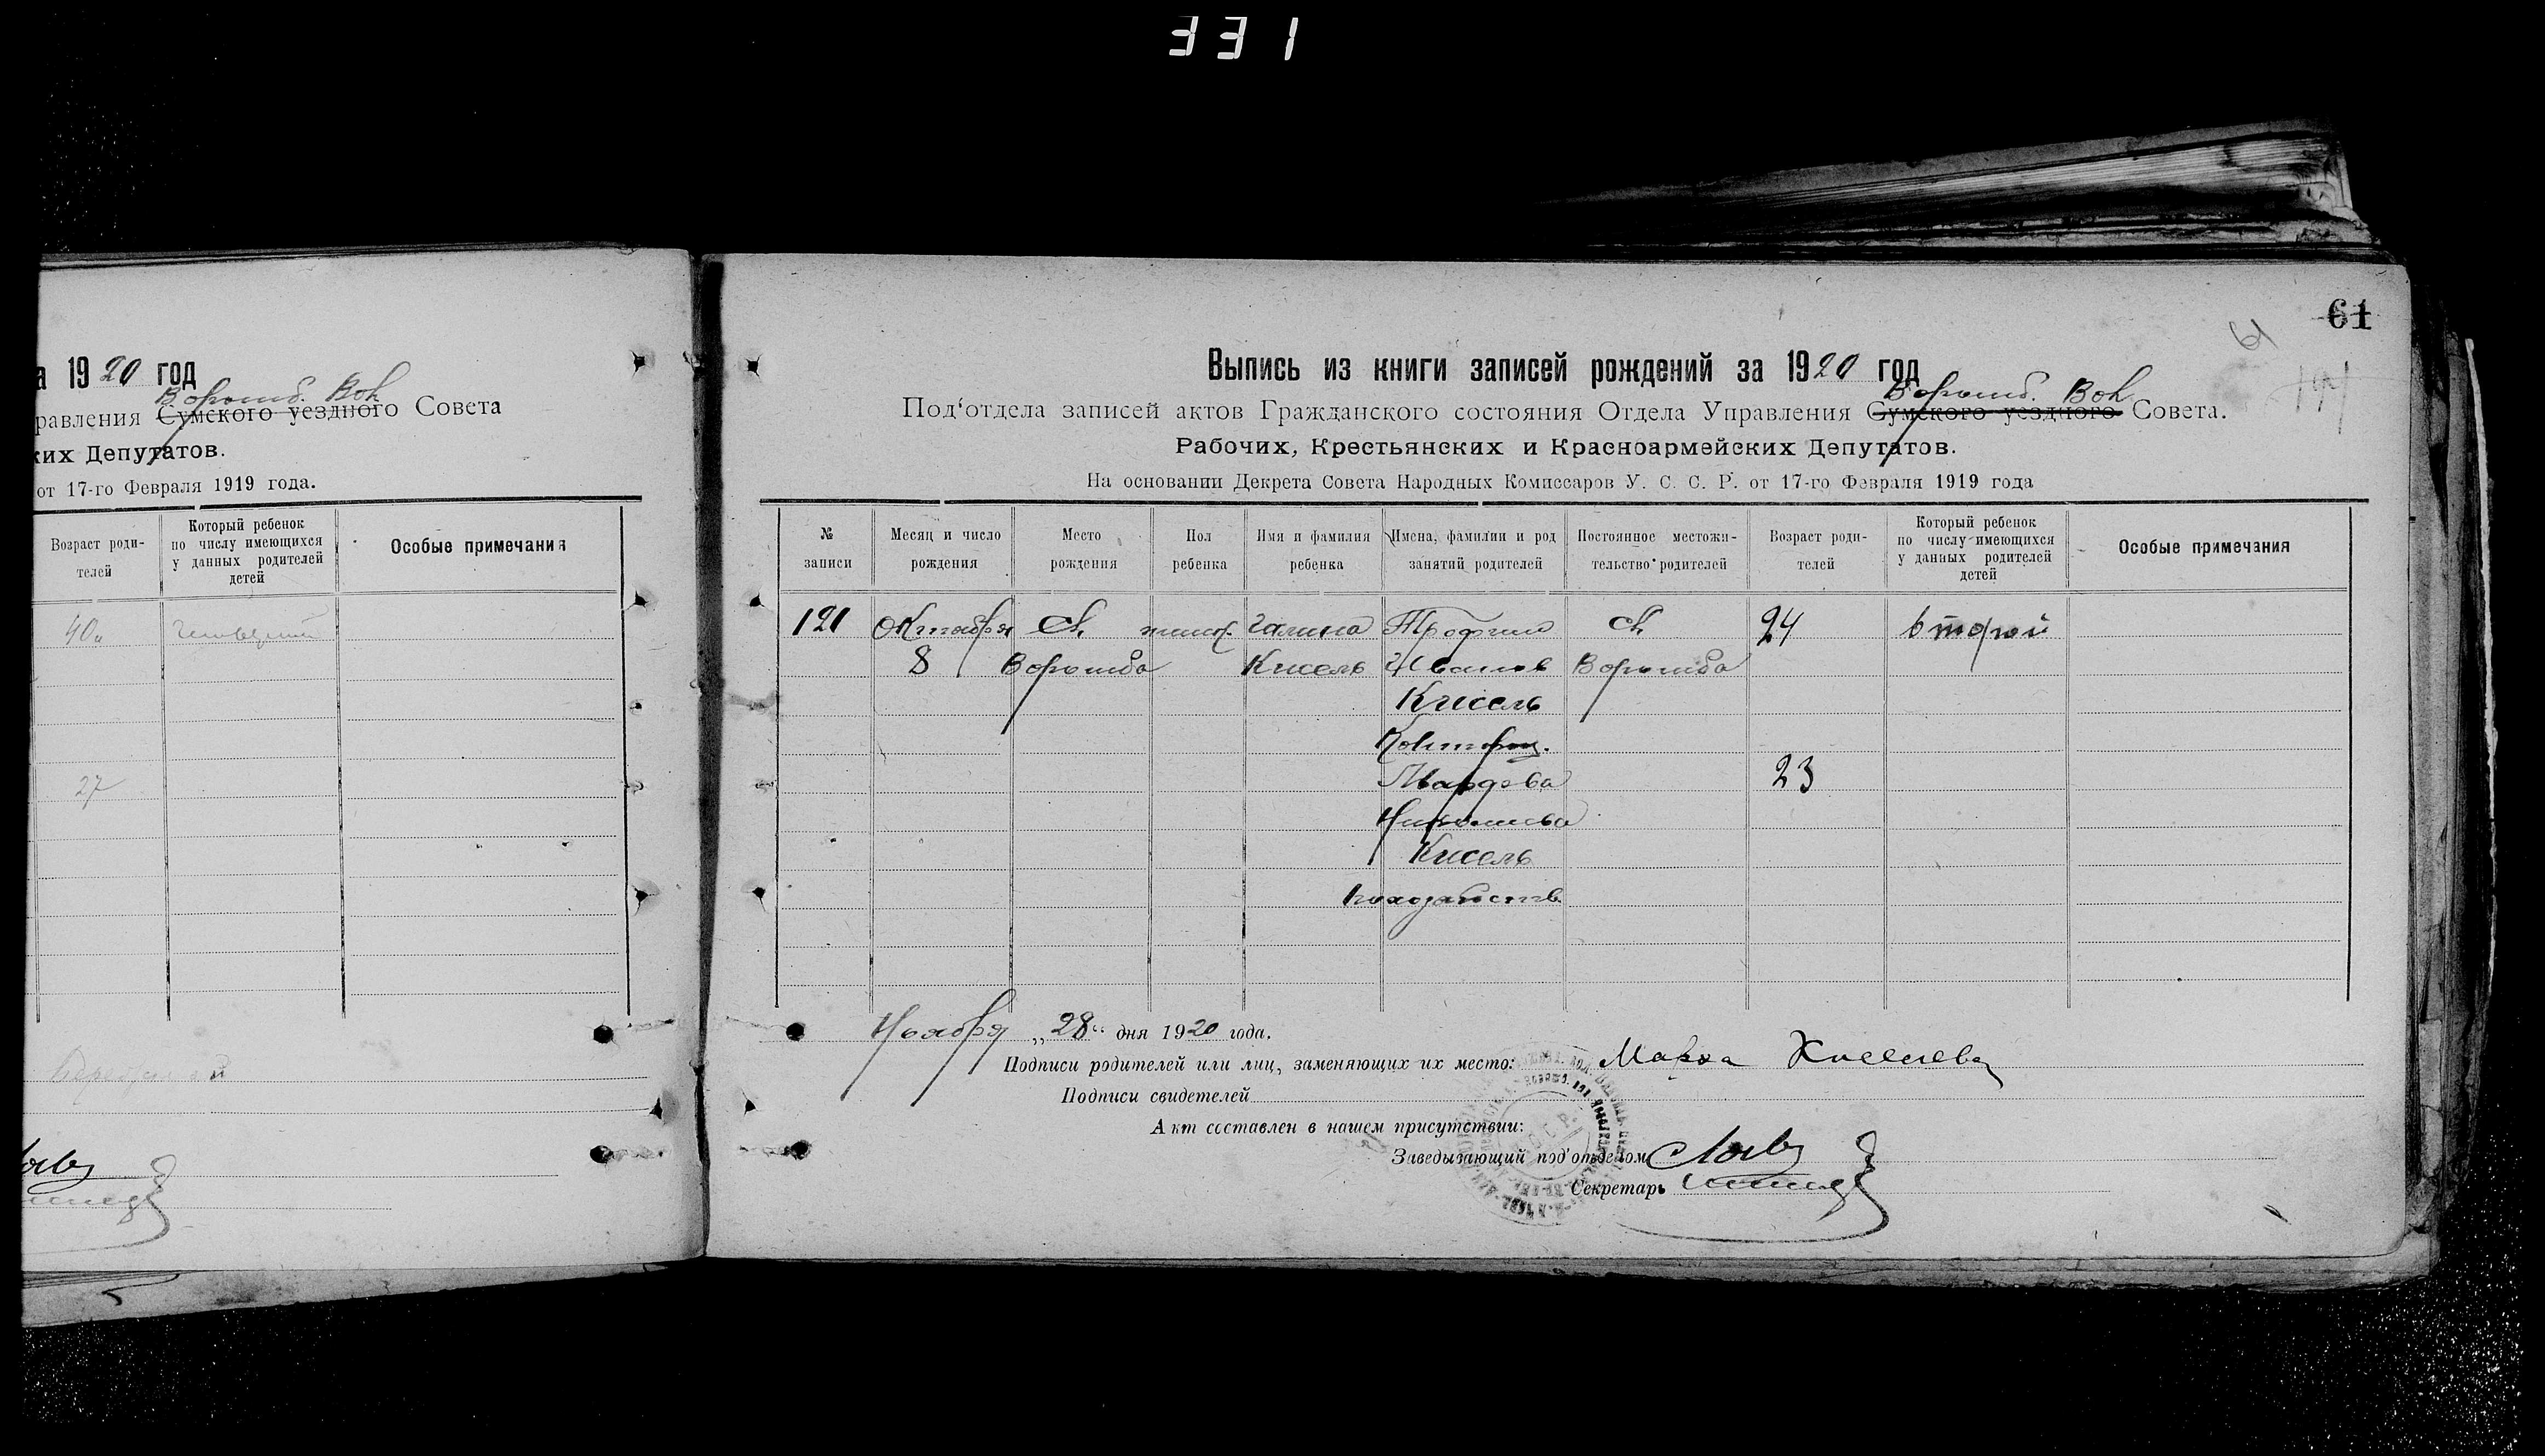 331
а 1920 год
Ворожб. Вол.
равления Сумского уездного Совета
ких Депутатов.
от 17-го Февраля 1919 года.
Возраст роди-
телей
Который ребенок
по числу имеющихся
у данных родителей
детей
Особые примечания
40
27
61
61
Выпись из книги записей рождений за 1920 год
Ворожб. Вол.
Под‘отдела записей актов Гражданского состояния Отдела Управления Сумского уездного Совета.
Рабочих, Крестьянских и Красноармейских Депутатов.
На основании Декрета Совета Народных Комиссаров У. С. С. Р. от 17-го Февраля 1919 года
№
записи
Месяц и число
рождения
Место
рождения
Пол
ребенка
Имя и фамилия
ребенка
Имена, фамилии и род
занятий родителей
Постоянное местожи-
тельство родителей
Возраст роди-
телей
Который ребенок
по числу имеющихся
у данных родителей
детей
Особые примечания
121 Октября с. женс. Галина Трофим с. 24 второй
8 Ворожба Кисель Иванов Ворожба
Кисель
23
Кисель
Ноября „28“ дня 1920 года.
Подписи родителей или лиц, заменяющих их место: Марфа Киселева
Подписи свидетелей
Акт составлен в нашем присутствии:
Заведывающий под‘отделом
Секретарь